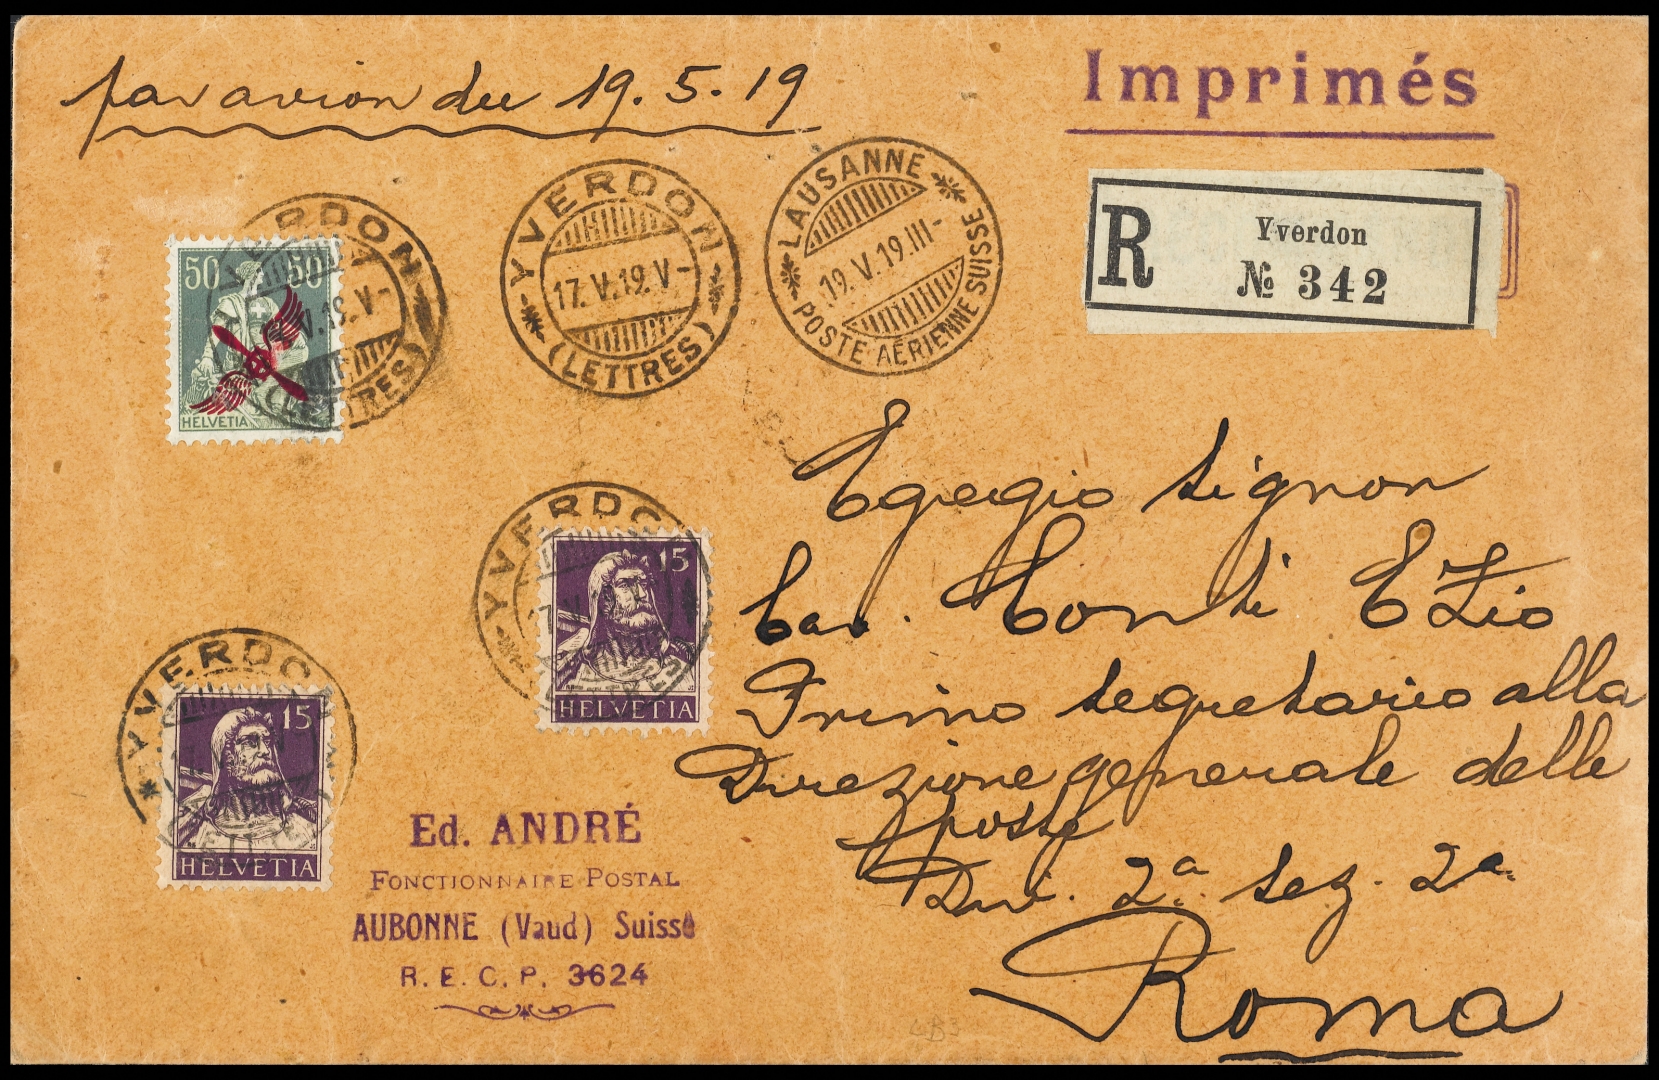 par avion du 19.5.19
Imprimés
R
Yverdon
№ 342
YVERDON
17.V.19.V-
(LETTRES)
LAUSANNE
19.V.19.III-
POSTE AÉRIENNE SUISSE
YVERDON
V.19.V-
(LETTRES)
50 50
HELVETIA
Egregio signor
Cav. Conti Ezio
Primo segretario alla
Direzione generale delle
poste
Div. 2a sez. 2a
Roma
YVERDON
15
HELVETIA
YVERDON
15
HELVETIA
Ed. ANDRÉ
FONCTIONNAIRE POSTAL
AUBONNE (Vaud) Suisse
R. E. C. P. 3624